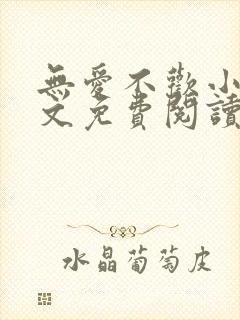 無愛不歡小
文免費閱讀
水晶葡萄皮